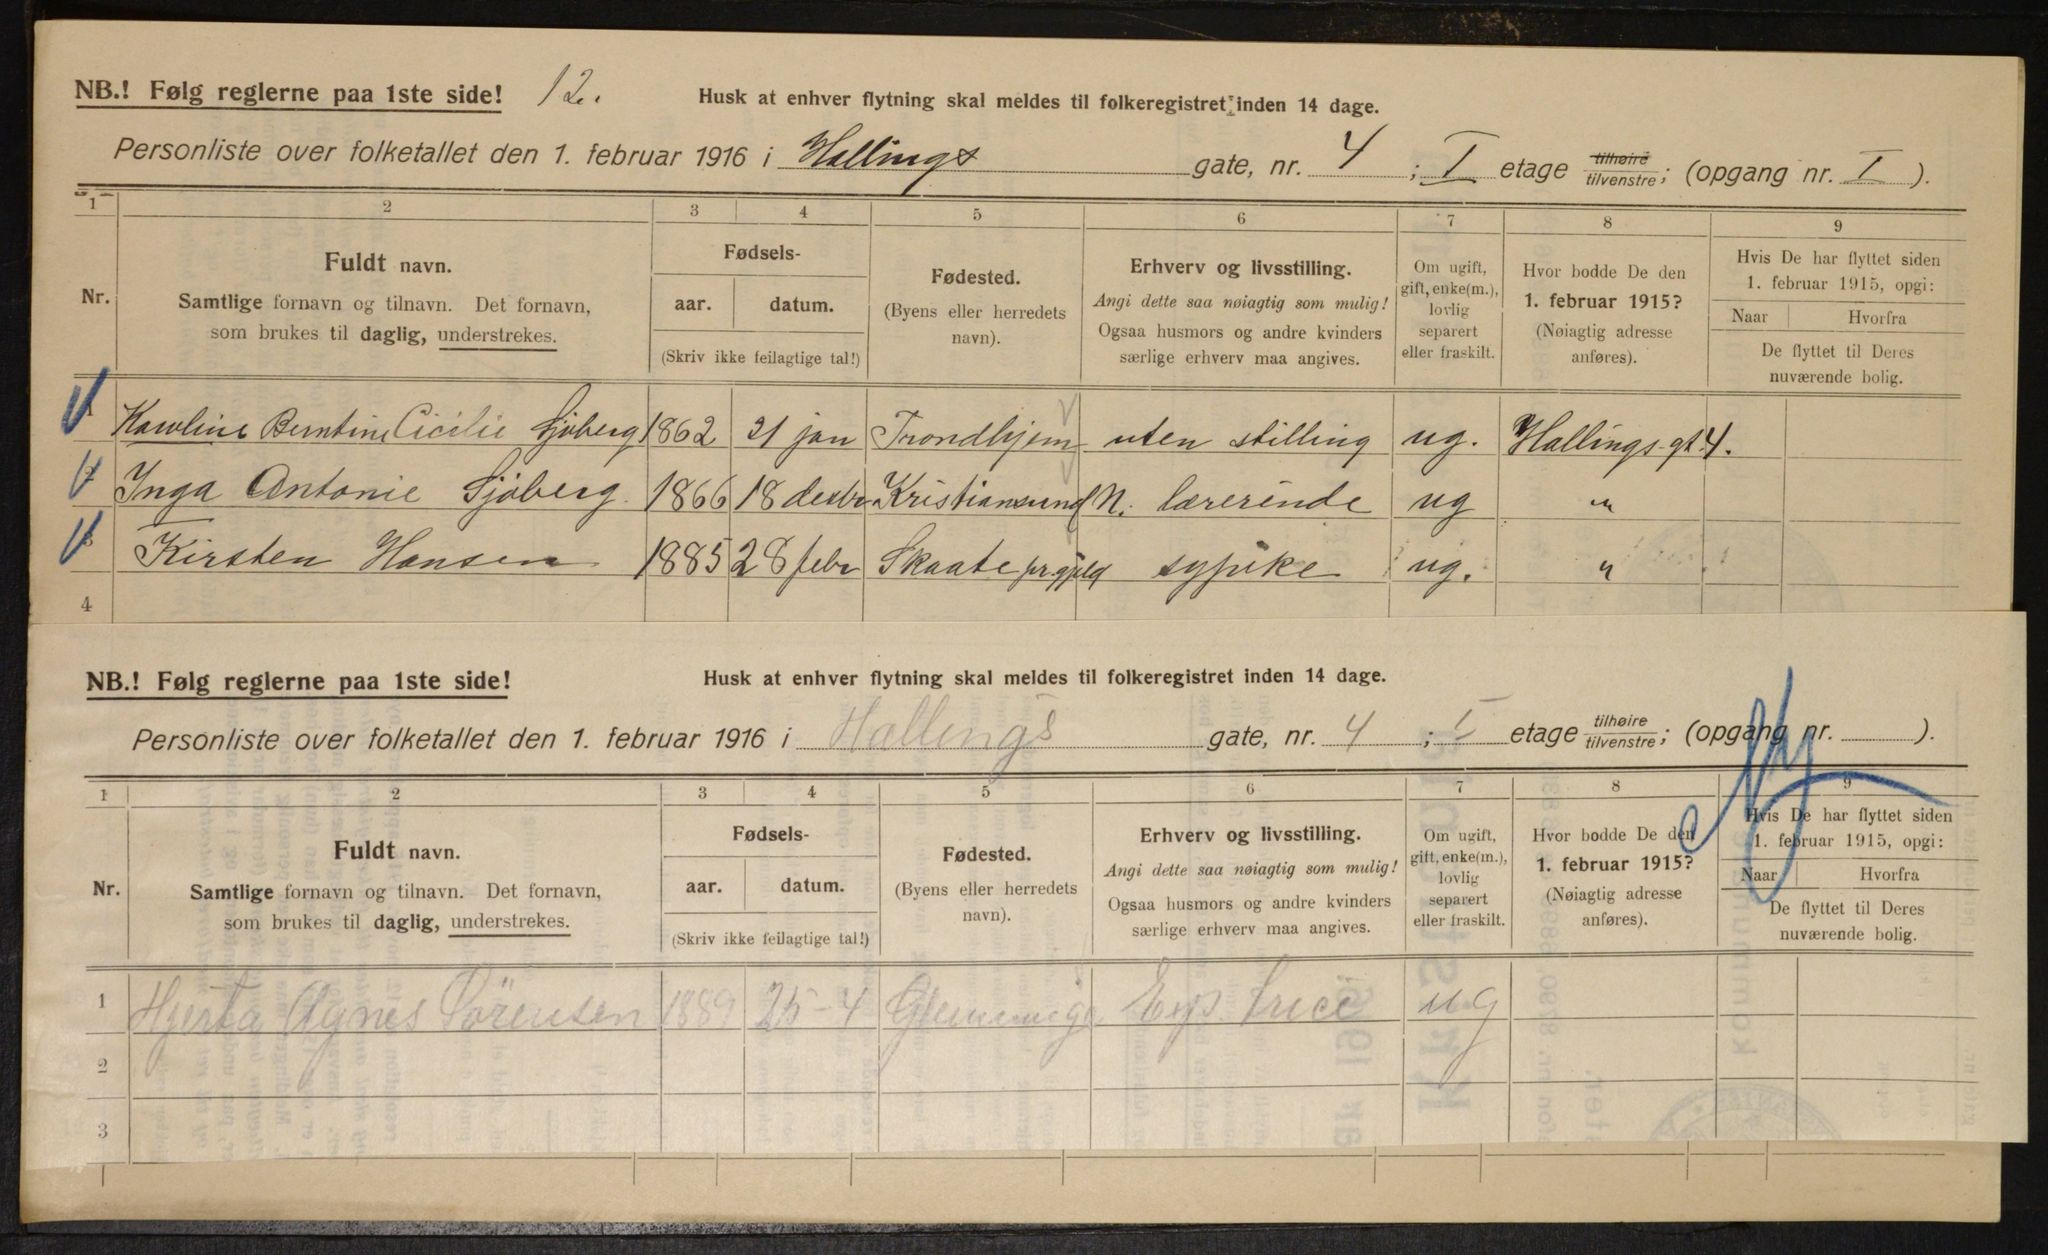 NB.! Følg reglerne paa 1ste side! 12. Husk at enhver flytning skal meldes til folkeregistret inden 14 dage.
Personliste over folketallet den 1. februar 1916 i Hallings gate, nr. 4 ; I etage tilhøire/tilvenstre; (opgang nr. I ).
1 2 3 4 5 6 7 8 9
Nr.
Fuldt navn.
Samtlige fornavn og tilnavn. Det fornavn,
som brukes til daglig, understrekes.
Fødsels-
aar. datum.
(Skriv ikke feilagtige tal!)
Fødested.
(Byens eller herredets
navn).
Erhverv og livsstilling.
Angi dette saa nøiagtig som mulig!
Ogsaa husmors og andre kvinders
særlige erhverv maa angives.
Om ugift,
gift, enke(m.),
lovlig
separert
eller fraskilt.
Hvor bodde De den
1. februar 1915?
(Nøiagtig adresse
anføres).
Hvis De har flyttet siden
1. februar 1915, opgi:
Naar Hvorfra
De flyttet til Deres
nuværende bolig.
1 Karoline Berntine Cicilie Sjøberg 1862 21 jan Trondhjem uten stilling ug. Hallings gt. 4.
2 Inga Antonie Sjøberg. 1866 18 desbr Kristiansund N. lærerinde ug "
3 Kirsten Hansen 1885 28 febr Skaate pr.gjeld sypike ug. "
4
NB.! Følg reglerne paa 1ste side! Husk at enhver flytning skal meldes til folkeregistret inden 14 dage.
Personliste over folketallet den 1. februar 1916 i Hallings gate, nr. 4 ; I etage tilhøire/tilvenstre; (opgang nr. ).
1 2 3 4 5 6 7 8 9
Nr.
Fuldt navn.
Samtlige fornavn og tilnavn. Det fornavn,
som brukes til daglig, understrekes.
Fødsels-
aar. datum.
(Skriv ikke feilagtige tal!)
Fødested.
(Byens eller herredets
navn).
Erhverv og livsstilling.
Angi dette saa nøiagtig som mulig!
Ogsaa husmors og andre kvinders
særlige erhverv maa angives.
Om ugift,
gift, enke(m.),
lovlig
separert
eller fraskilt.
Hvor bodde De den
1. februar 1915?
(Nøiagtig adresse
anføres).
Hvis De har flyttet siden
1. februar 1915, opgi:
Naar Hvorfra
De flyttet til Deres
nuværende bolig.
1 Hjerta Agnes Sørensen 1889 25-4 Glemminge ug
2
3